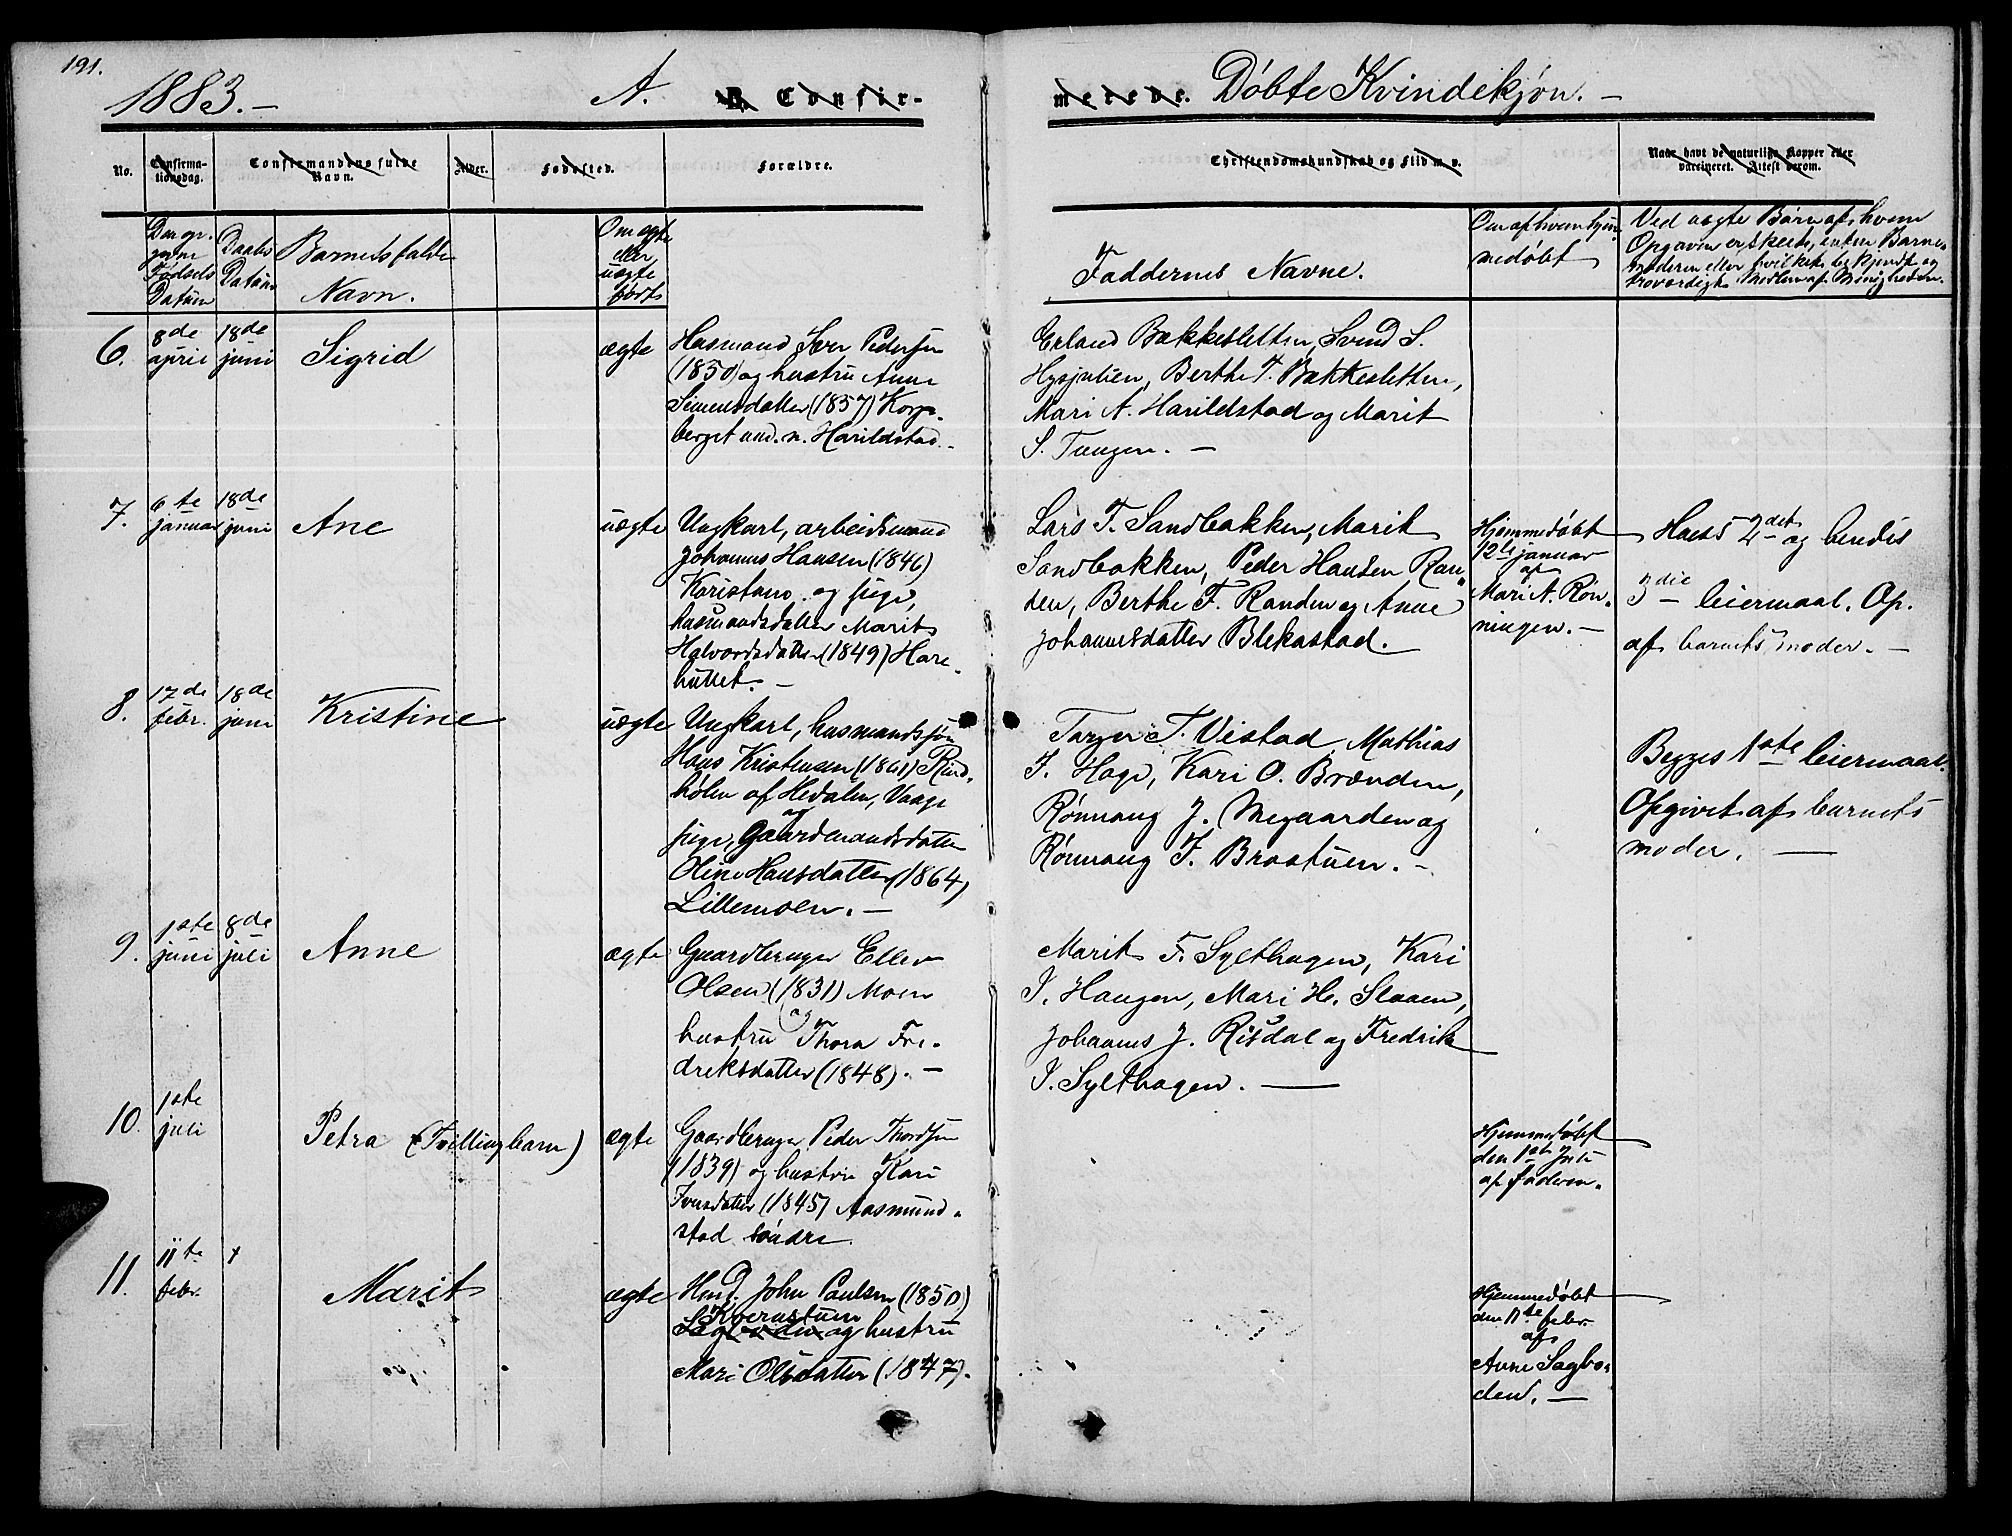 191.
1883.- A. B. Confir-
No. Confirma-tionsdag. Confirmandens fulde Navn. Alder. Fødested. Forældre.
Barnets fulde
Navn.
Om ægte
eller
uægte
født
6. 8de april 18de juni Sigrid ægte Husmand Iver Pedersen
(1850) og hustru Anne
Simensdatter (1857) Korp-
berget und. n. Harildstad.-
7. 6te januar 18de juni Ane uægte Ungkarl, arbeidsmand
Johannes Hansen (1846)
og pige,
husmandsdatter Marit
Halvorsdatter (1849) Hare-
hullet.-
8. 17de febr. 18de juni Kristine uægte Ungkarl, husmandssøn
Hans Kristensen (1861) Rind-
hølen af Hedalen, Vaage
og
pige, Gaardmandsdatter
Oline Hansdatter (1864)
Lillemoen.-
9. 1ste juni 8de juli Anne ægte Gaardbruger Ellev
Olsen (1831) Moen
og
hustru Thora Fre-
dreksdatter (1848).-
10. 1ste juli Petra (Tvillingbarn) ægte Gaardbruger Peder Thordsen
(1839) og hustru Kari
Iversdatter (1845) Aasmund-
stad søndre.
11. 11te febr. + Marit ægte Hmd. John Paulsen (1850)
Kvernstuen
Sagboden og hustru
Mari Olsdatter (1847).
merede. Døbte Kvindekjøn.-
Christendomskundskab og Flid m. v. Naar havt de naturlige Kopper eller
vaccineret. Attest derom.
Faddernes Navne.
Om af hvem hjem-
medøbt
Ved uægte Børn af hvem
Opgaven er skeet, enten Barne-
moderen eller hvilket bekjendt og
troværdigt Medlem af Menigheden.
Erland Bakkesletten, Svend S.
Hysjulien, Berthe T. Bakkesletten,
Mari A. Harildstad og Marit
S. Tungen.-
Lars T. Sandbakken, Marit
Sandbakken, Peder Hansen Ran-
den, Berthe F. Randen og Anne
Johannesdatter Blekastad.
Hjemmedøbt
12te januar
af
Mari A. Røn-
ningen.-
Hans 2det og hendes
3die leiermaal. Op.
af barnets moder.-
Torger T. Vistad, Mathias
J. Hage, Kari O. Brænden,
Rønnaug J. Megaarden og
Rønnaug T. Brastuen.-
Begges 1ste leiermaal.
Opgivet af barnets
moder.-
Marit F. Sylthagen, Kari
I. Haugen, Mari H. Slaaen,
Johannes J. Risdal og Fredrik
I. Sylthagen.-
Hjemmedøbt
den 1ste Juli
af faderen.
Hjemmedøbt
den 11te febr.
af
Anne Sagbo-
den.-